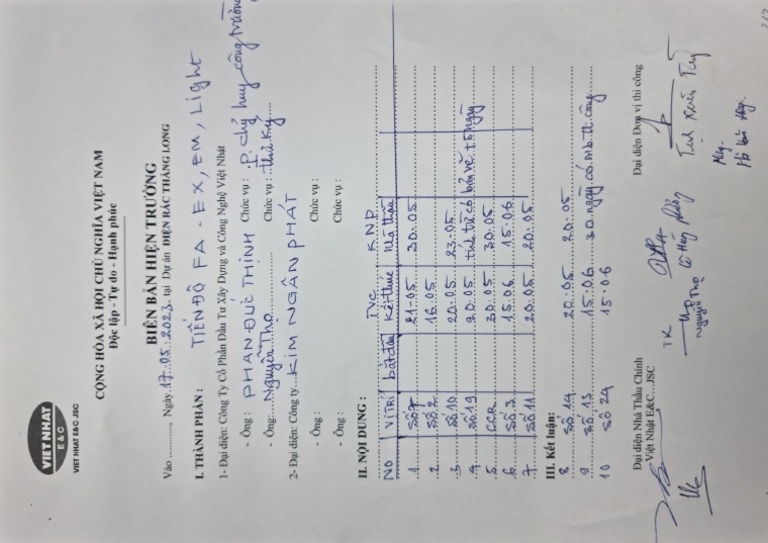 VIET NHAT
E & C
VIET NHAT E&C JSC
CỘNG HÒA XÃ HỘI CHỦ NGHĨA VIỆT NAM
Độc lập - Tự do - Hạnh phúc
BIÊN BẢN HIỆN TRƯỜNG
Vào ..........., Ngày 17.05.2023 tại Dự án ĐIỆN RÁC THĂNG LONG
I. THÀNH PHẦN : TIẾN ĐỘ FA - EX, EM, Light
1- Đại diện: Công Ty Cổ Phần Đầu Tư Xây Dựng và Công Nghệ Việt Nhật
- Ông : PHAN ĐỨC THỊNH Chức vụ : P. chỉ huy công trường
- Ông: Nguyễn Thọ Chức vụ : thư ký
2- Đại diện: Công ty KIM NGÂN PHÁT
- Ông : Chức vụ :
- Ông : Chức vụ :
II. NỘI DUNG :
TVC KNP
NO VỊ TRÍ bắt đầu kết thúc Nhà thầu
1 Số 7 21-05 30.05
2 Số 2 16.05
3 Số 10 20.05 23.05
4 Số 19 20.05 tính từ có bản vẽ + 5 ngày
5 CCR 30.05 30.05
6 Số 3 15.06 15.06
7 Số 11 20.05 20.05
III. Kết luận:
8 Số 14 20.05 20.05
9 Số 13 15.06 30 ngày có mb thi công
10 Số 24 15.06
Đại diện Nhà Thầu Chính Đại diện Đơn vị thi công
Việt Nhật E&C., JSC
TK
Nguyễn Thọ